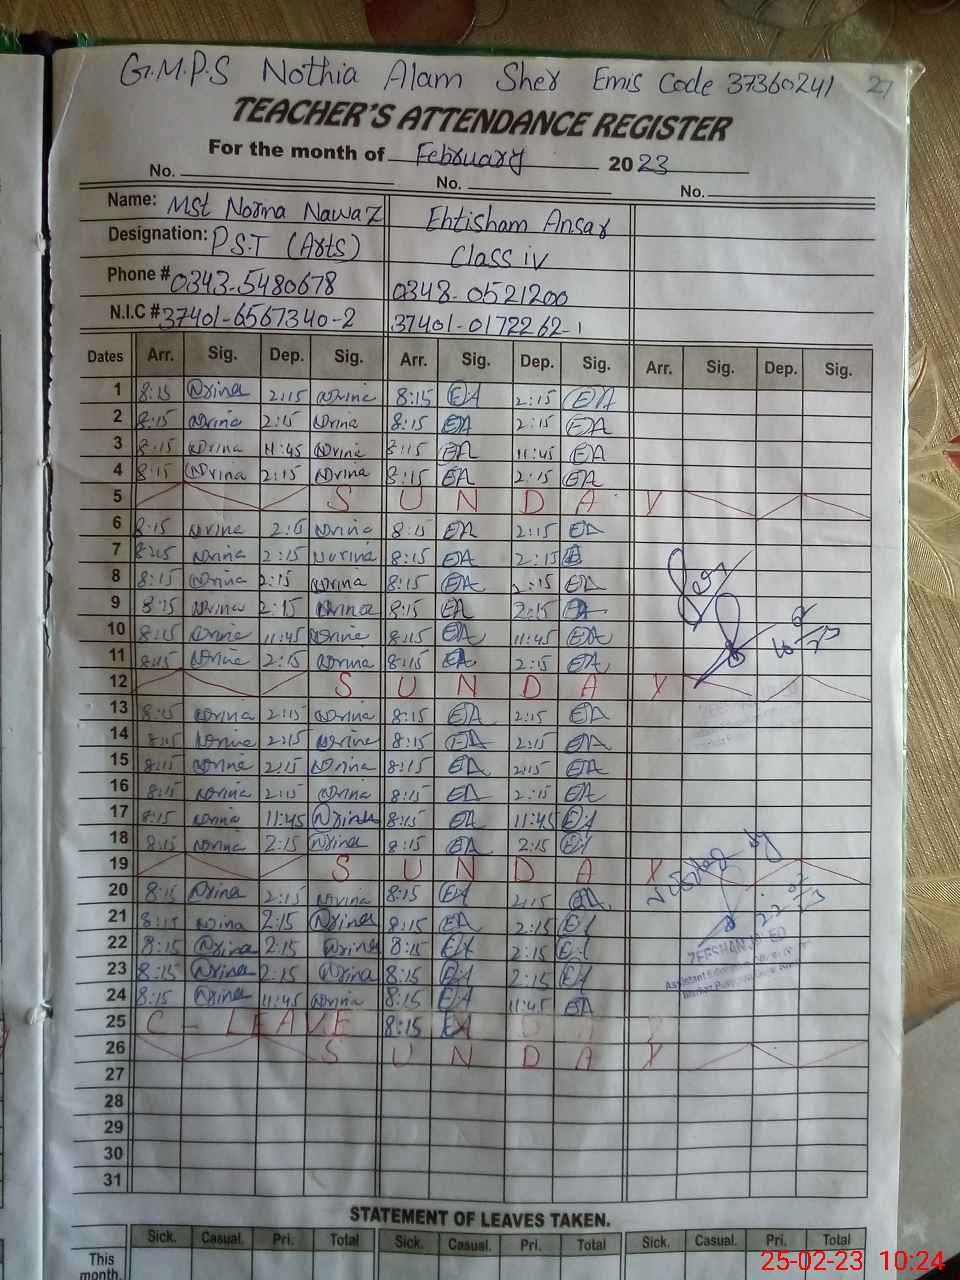 G.M.P.S Nothia Alam Sher Emis Code 37360241 27
TEACHER'S ATTENDANCE REGISTER
For the month of February 2023
No. No. No.
Name: Mst Norina Nawaz Ehtisham Ansar
Designation: P.S.T (Arts) Class iv
Phone # 0343-5480678 0348-0521200
N.I.C # 37401-6567340-2 37401-0172262-1
Dates Arr. Sig. Dep. Sig. Arr. Sig. Dep. Sig. Arr. Sig. Dep. Sig.
1 8:15 Norina 2:15 Norina 8:15 EA 2:15 EA
2 8:15 Norina 2:15 Norina 8:15 EA 2:15 EA
3 8:15 Norina 11:45 Norina 8:15 EA 11:45 EA
4 8:15 Norina 2:15 Norina 8:15 EA 2:15 EA
5 S U N D A Y
6 8:15 Norina 2:15 Norina 8:15 EA 2:15 EA
7 8:15 Norina 2:15 Norina 8:15 EA 2:15 EA
8 8:15 Norina 2:15 Norina 8:15 EA 2:15 EA
9 8:15 Norina 2:15 Norina 8:15 EA 2:15 EA
10 8:15 Norina 11:45 Norina 8:15 EA 11:45 EA
11 8:15 Norina 2:15 Norina 8:15 EA 2:15 EA
12 S U N D A Y
13 8:15 Norina 2:15 Norina 8:15 EA 2:15 EA
14 8:15 Norina 2:15 Norina 8:15 EA 2:15 EA
15 8:15 Norina 2:15 Norina 8:15 EA 2:15 EA
16 8:15 Norina 2:15 Norina 8:15 EA 2:15 EA
17 8:15 Norina 11:45 Norina 8:15 EA 11:45 EA
18 8:15 Norina 2:15 Norina 8:15 EA 2:15 EA
19 S U N D A Y
20 8:15 Norina 2:15 Norina 8:15 EA 2:15 EA
21 8:15 Norina 2:15 Norina 8:15 EA 2:15 EA
22 8:15 Norina 2:15 Norina 8:15 EA 2:15 EA
23 8:15 Norina 2:15 Norina 8:15 EA 2:15 EA
24 8:15 Norina 11:45 Norina 8:15 EA 11:45 EA
25 C - LEAVE 8:15 EA
26 S U N D A Y
27
28
29
30
31
by
22-02-23
ZEESHAN
STATEMENT OF LEAVES TAKEN.
Sick. Casual. Pri. Total Sick. Casual. Pri. Total Sick. Casual. Pri. Total
This
month.
25-02-23 10:24